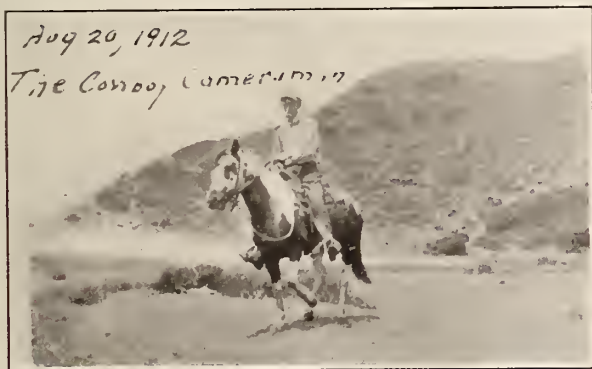 Aug 20, 1912
The Cowboy Cameraman